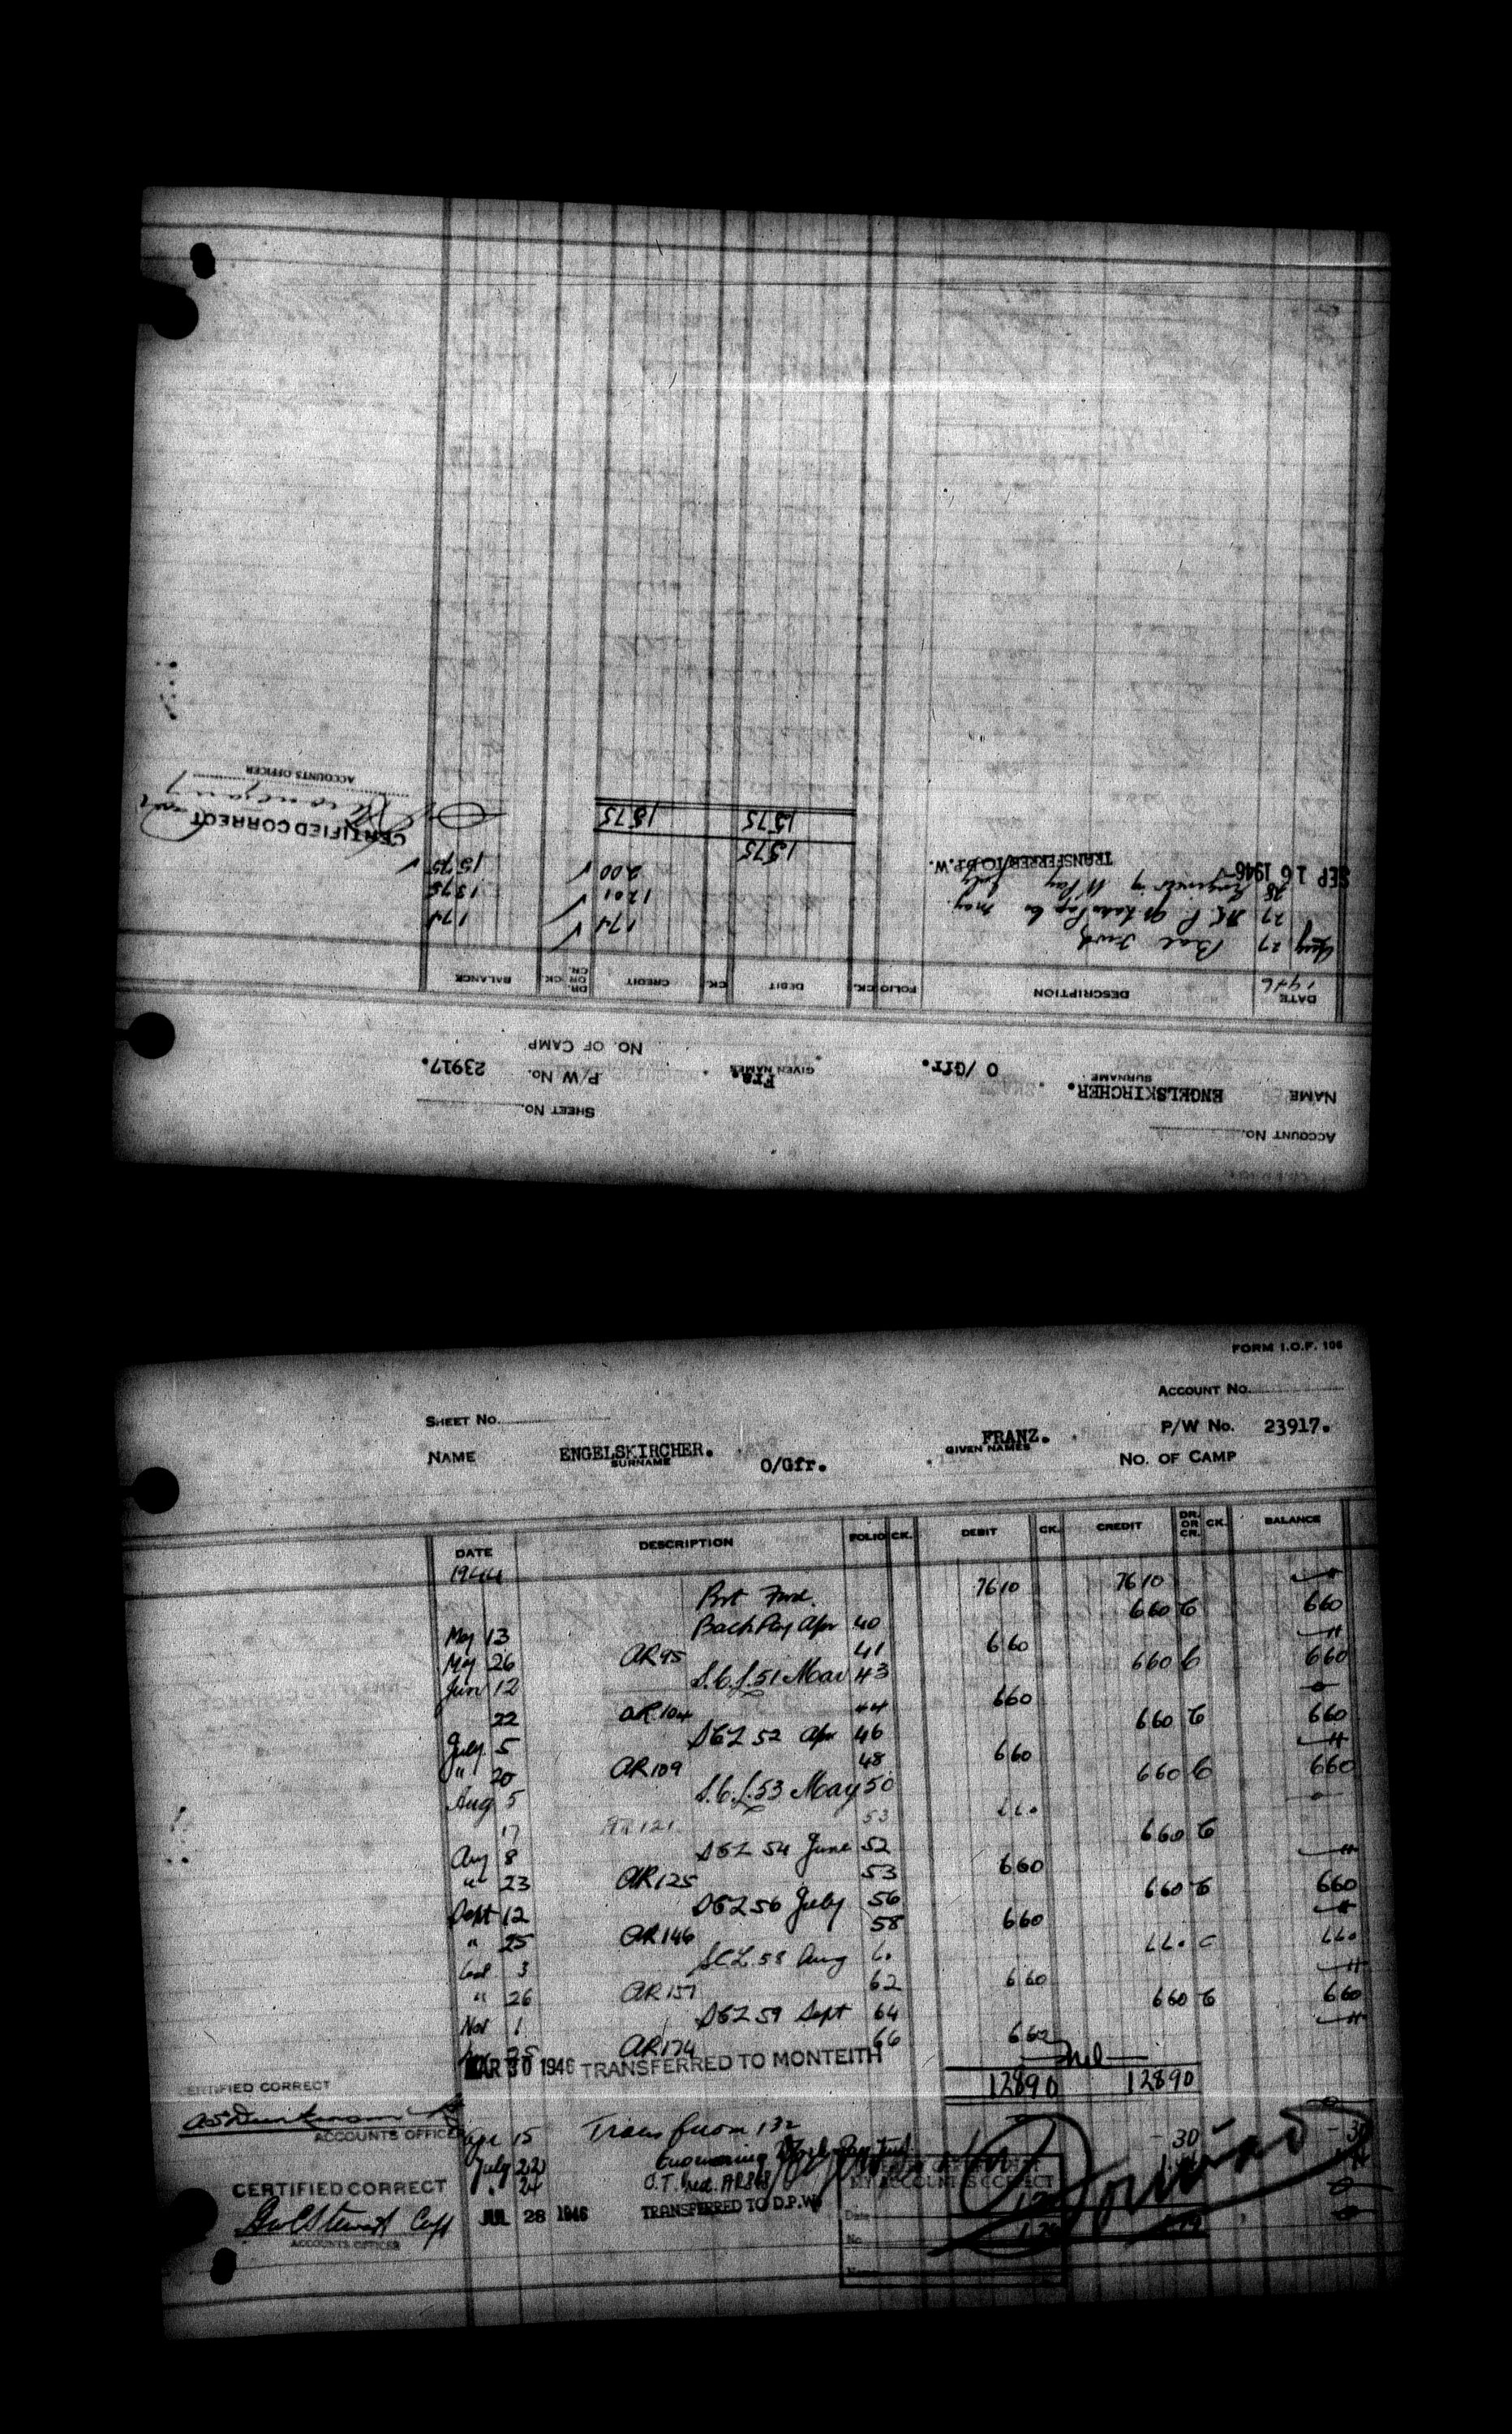 ACCOUNT No.
NAME ENGELSKIRCHER. O/Gfr. Fra. SHEET No.
SURNAME GIVEN NAMES P/W No. 23917.
NO. OF CAMP
DATE DESCRIPTION FOLIO CK. DEBIT CK. CREDIT DR. OR CR. CK. BALANCE
1946
Aug 27 Bal Fwd 174 174
27 1201 1375
28 Engineering W Pay July 200 1575
SEP 16 1946 TRANSFERRED TO D.P.W. 1575
1575 1575
CERTIFIED CORRECT
ACCOUNTS OFFICER
FORM I.O.F. 106
ACCOUNT No.
SHEET No.
P/W No. 23917.
NAME ENGELSKIRCHER. O/Gfr. FRANZ.
SURNAME GIVEN NAMES
NO. OF CAMP
DATE DESCRIPTION FOLIO CK. DEBIT CK. CREDIT DR. OR CR. CK. BALANCE
1944
Brt Fwd. 7610 7610
May 13 Back Pay Apr 40 660 C 660
May 26 AR95 41 660
Jun 12 S.C.L. 51 Mar 43 660 C 660
22 AR104 44 660
July 5 SCL 52 Apr 46 660 C 660
" 20 AR109 48 660
Aug 5 S.C.L. 53 May 50 660 C 660
17 AR121 53 660
Aug 8 SCL 54 June 52 660 C
" 23 AR125 53 660
Sept 12 SCL 56 July 56 660 C 660
" 25 AR146 58 660
Oct. 3 SCL 58 Aug 60 660 C 660
" 26 AR157 62 660
Nov 1 SCL 59 Sept 64 660 C 660
25 AR174 66 660
MAR 30 1946 TRANSFERRED TO MONTEITH Nil
12890 12890
CERTIFIED CORRECT
ACCOUNTS OFFICER
Apr 15 Trans from 132
July 22 Engineering 30 30
" 24 O.T. Cred. AR868
CERTIFIED CORRECT
MY ACCOUNT IS CORRECT
JUL 28 1946 TRANSFERRED TO D.P.W.
Date
No.
Name
ACCOUNTS OFFICER